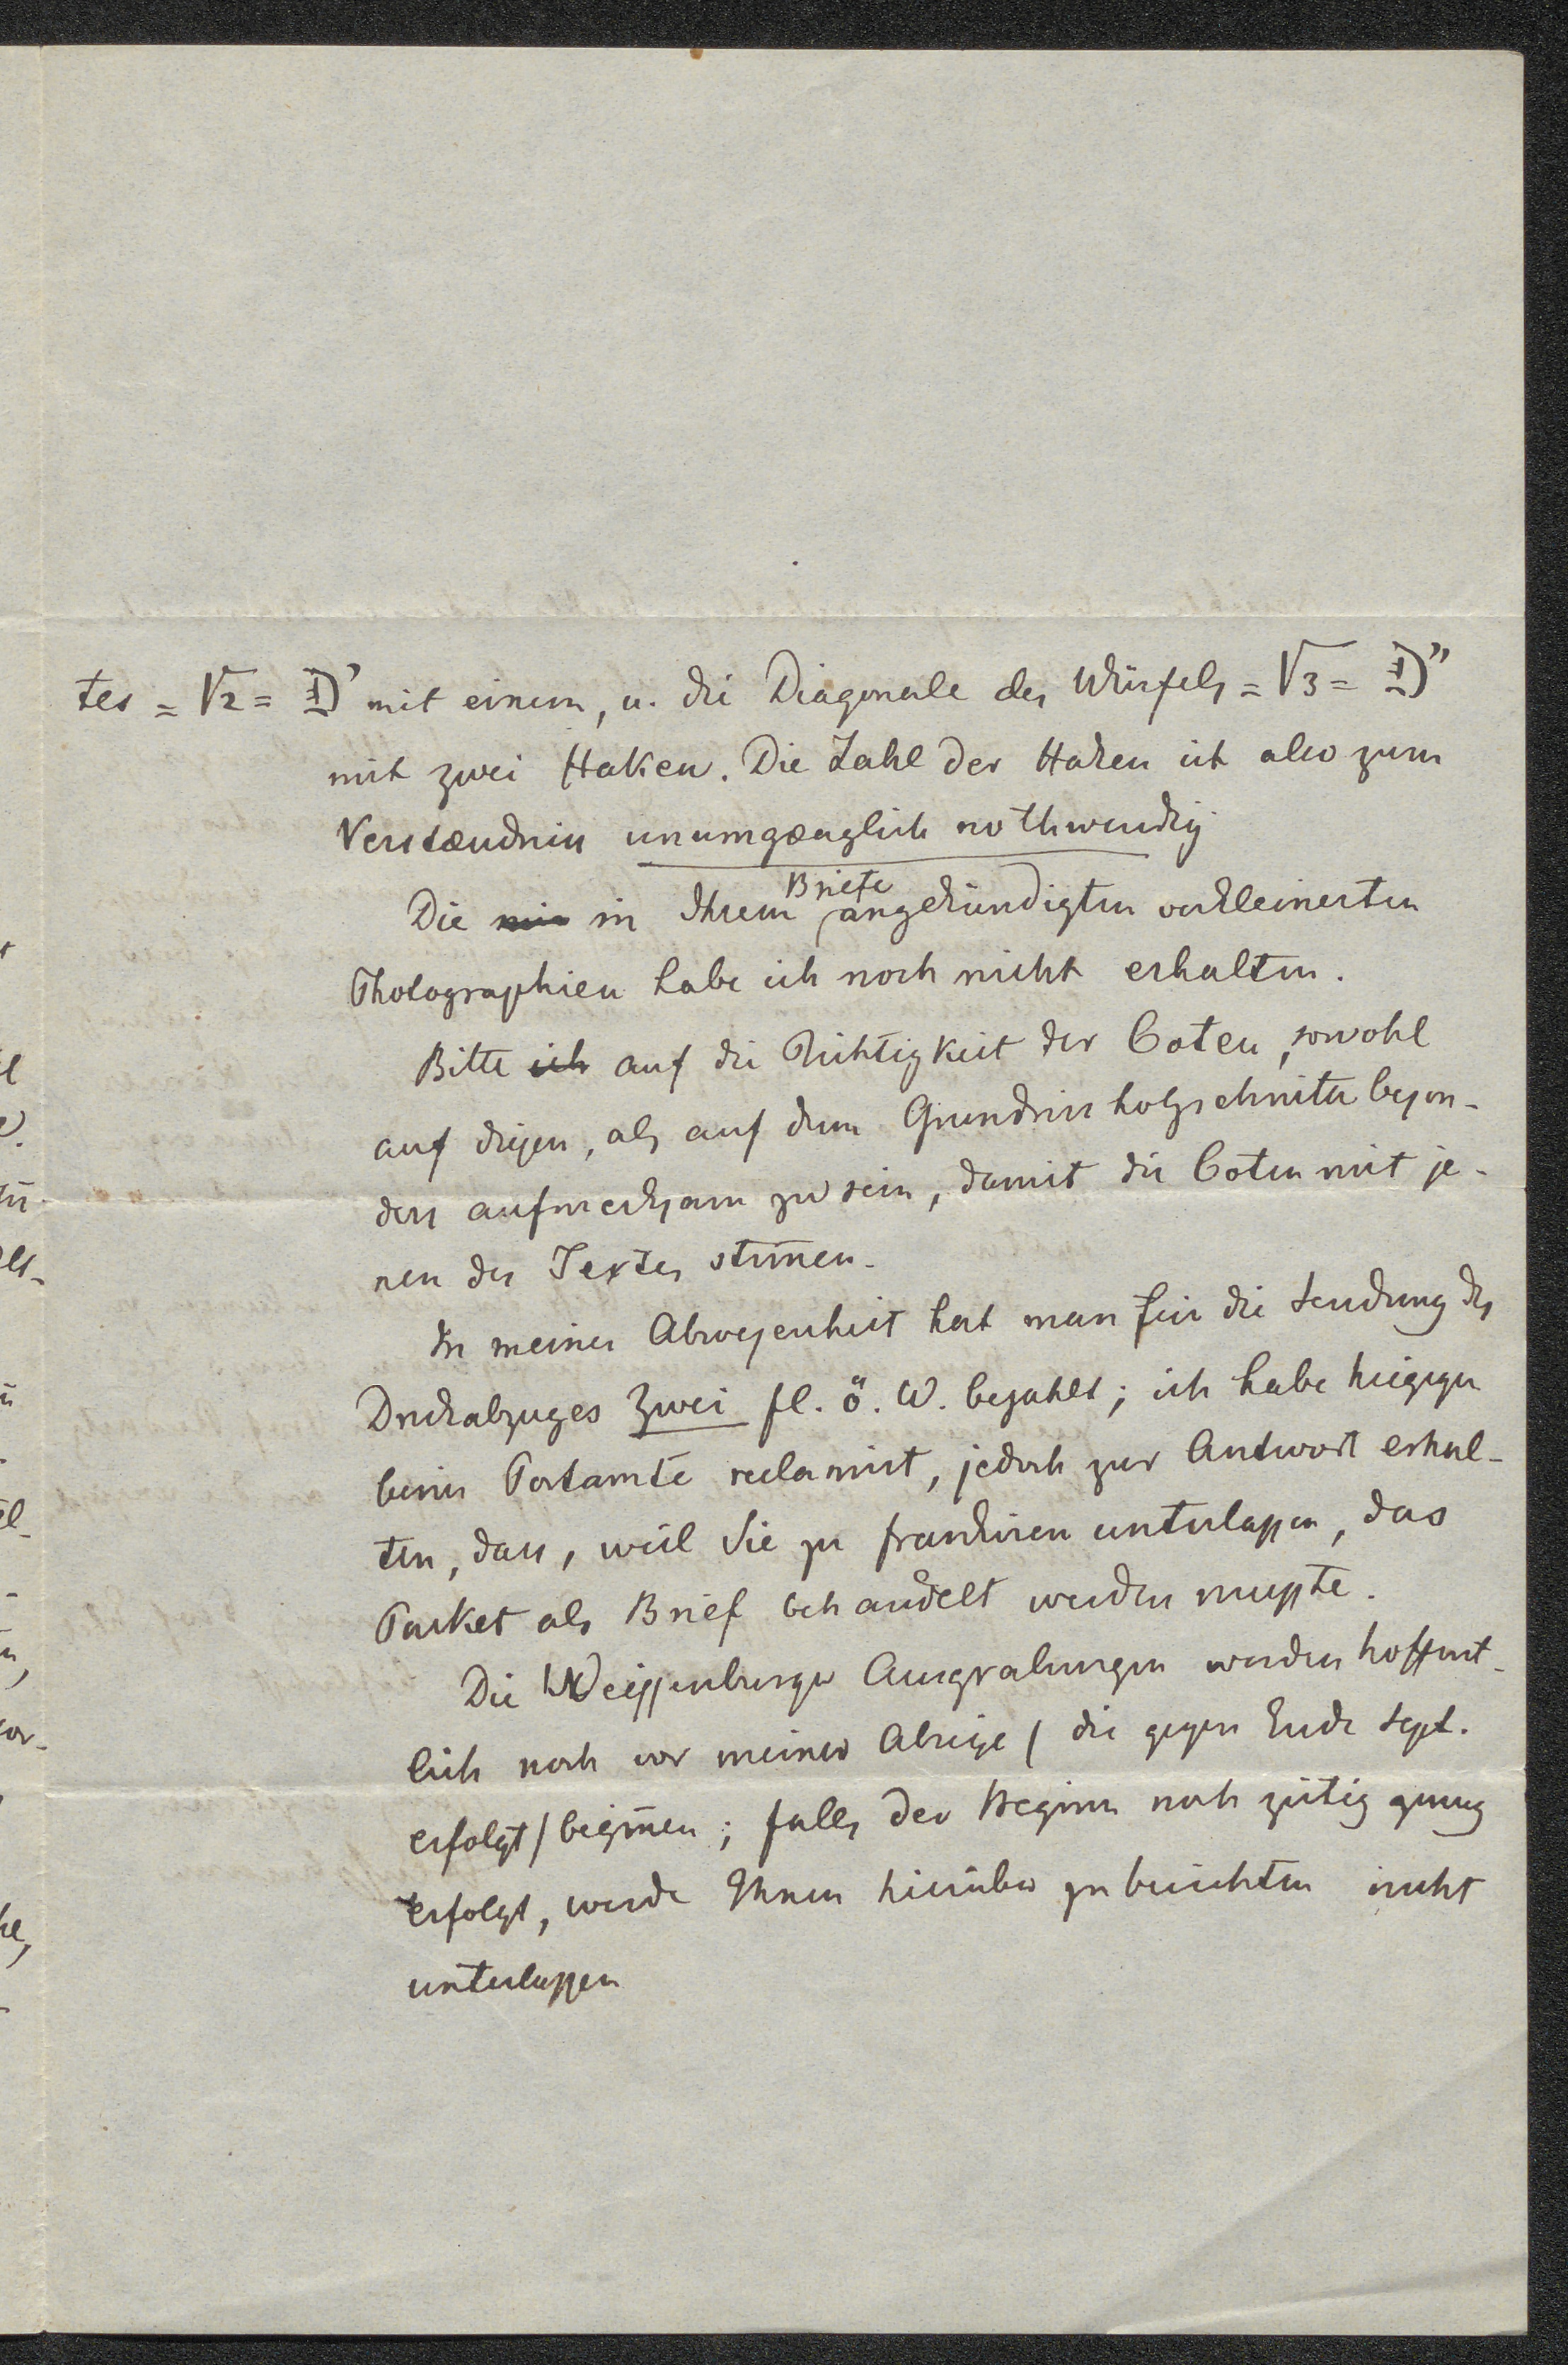 tes = √2 = D' mit einem, u. die Diagonale des Würfels = √3 = D"
mit zwei Haken. Die Zahl der Haken ist also zum
Verstændniss unumgænglich nothwendig
Die mir in Ihrem Briefe angekündigten verkleinerten
Photographien habe ich noch nicht erhalten.
Bitte ich auf die Richtigkeit der Coten, sowohl
auf diesen, als auf dem Grundriss holzschnitte beson-
ders aufmerksam zu sein, damit die Coten mit je-
nen des Textes stim̄en.
In meiner Abwesenheit hat man für die Sendung des
Druckabzuges zwei fl. ö. W. bezahlt; ich habe hiegegen
beim Postamte reclamirt, jedoch zur Antwort erhal-
ten, dass, weil Sie zu frankiren unterlassen, das
Packet als Brief behandelt werden musste.
Die Weissenburger Ausgrabungen werden hoffent-
lich noch vor meiner Abreise / die gegen Ende Sept.
erfolgt / begin̄en; falls der Beginn noch zeitig genug
erfolgt, werde Ihnen hierüber zu berichten nicht
unterlassen